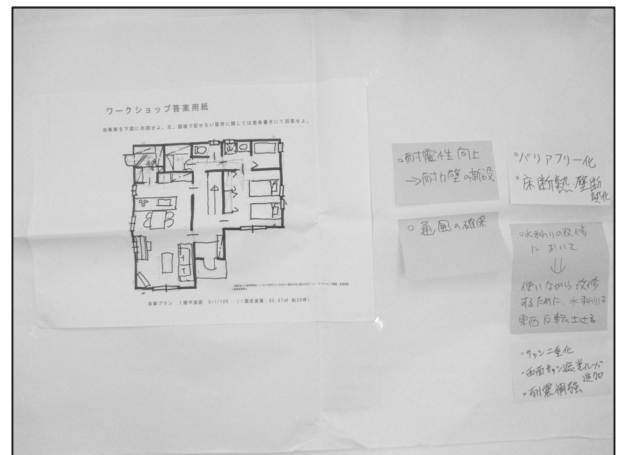 ワークショップ答案用紙
改修プラン 1階平面図 S=1/100
○耐震性向上
→耐力壁の新設
○通風の確保
○バリアフリー化
○床断熱 壁断熱化
○水まわりの改修
において
⇓
使いながら改修
するために、水まわりは
東西反転させる
・サッシ二重化
・西面サッシ遮光ルーバー追加
・耐震補強